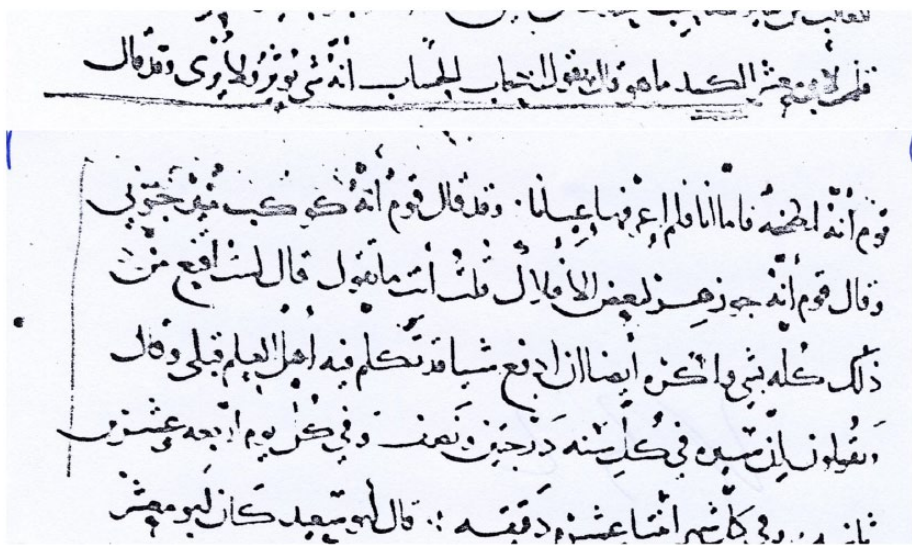 قلت لابي معشر الكيد ما هو قال يقول اصحاب الحساب انه شي يوثر ولا يرى وقد قال
قوم انه لطخه فاما انا فلم اعرفها عيانا وقد قال قوم انه كوكب
وقال قوم انه جوزهر بعض الافلاك قلت انت ما تقول قال لست اقنع من
ذلك كله بشي واكره ايضا ان ادفع شيا قد تكلم فيه اهل العلم قبلي وقال
ويقولون انه يسير في كل سنه درجتين ونصف وفي كل يوم اربعه وعشرين
ثانيه وفي كل شهر اثنتا عشره دقيقه قال ابو سعيد كان ابو معشر